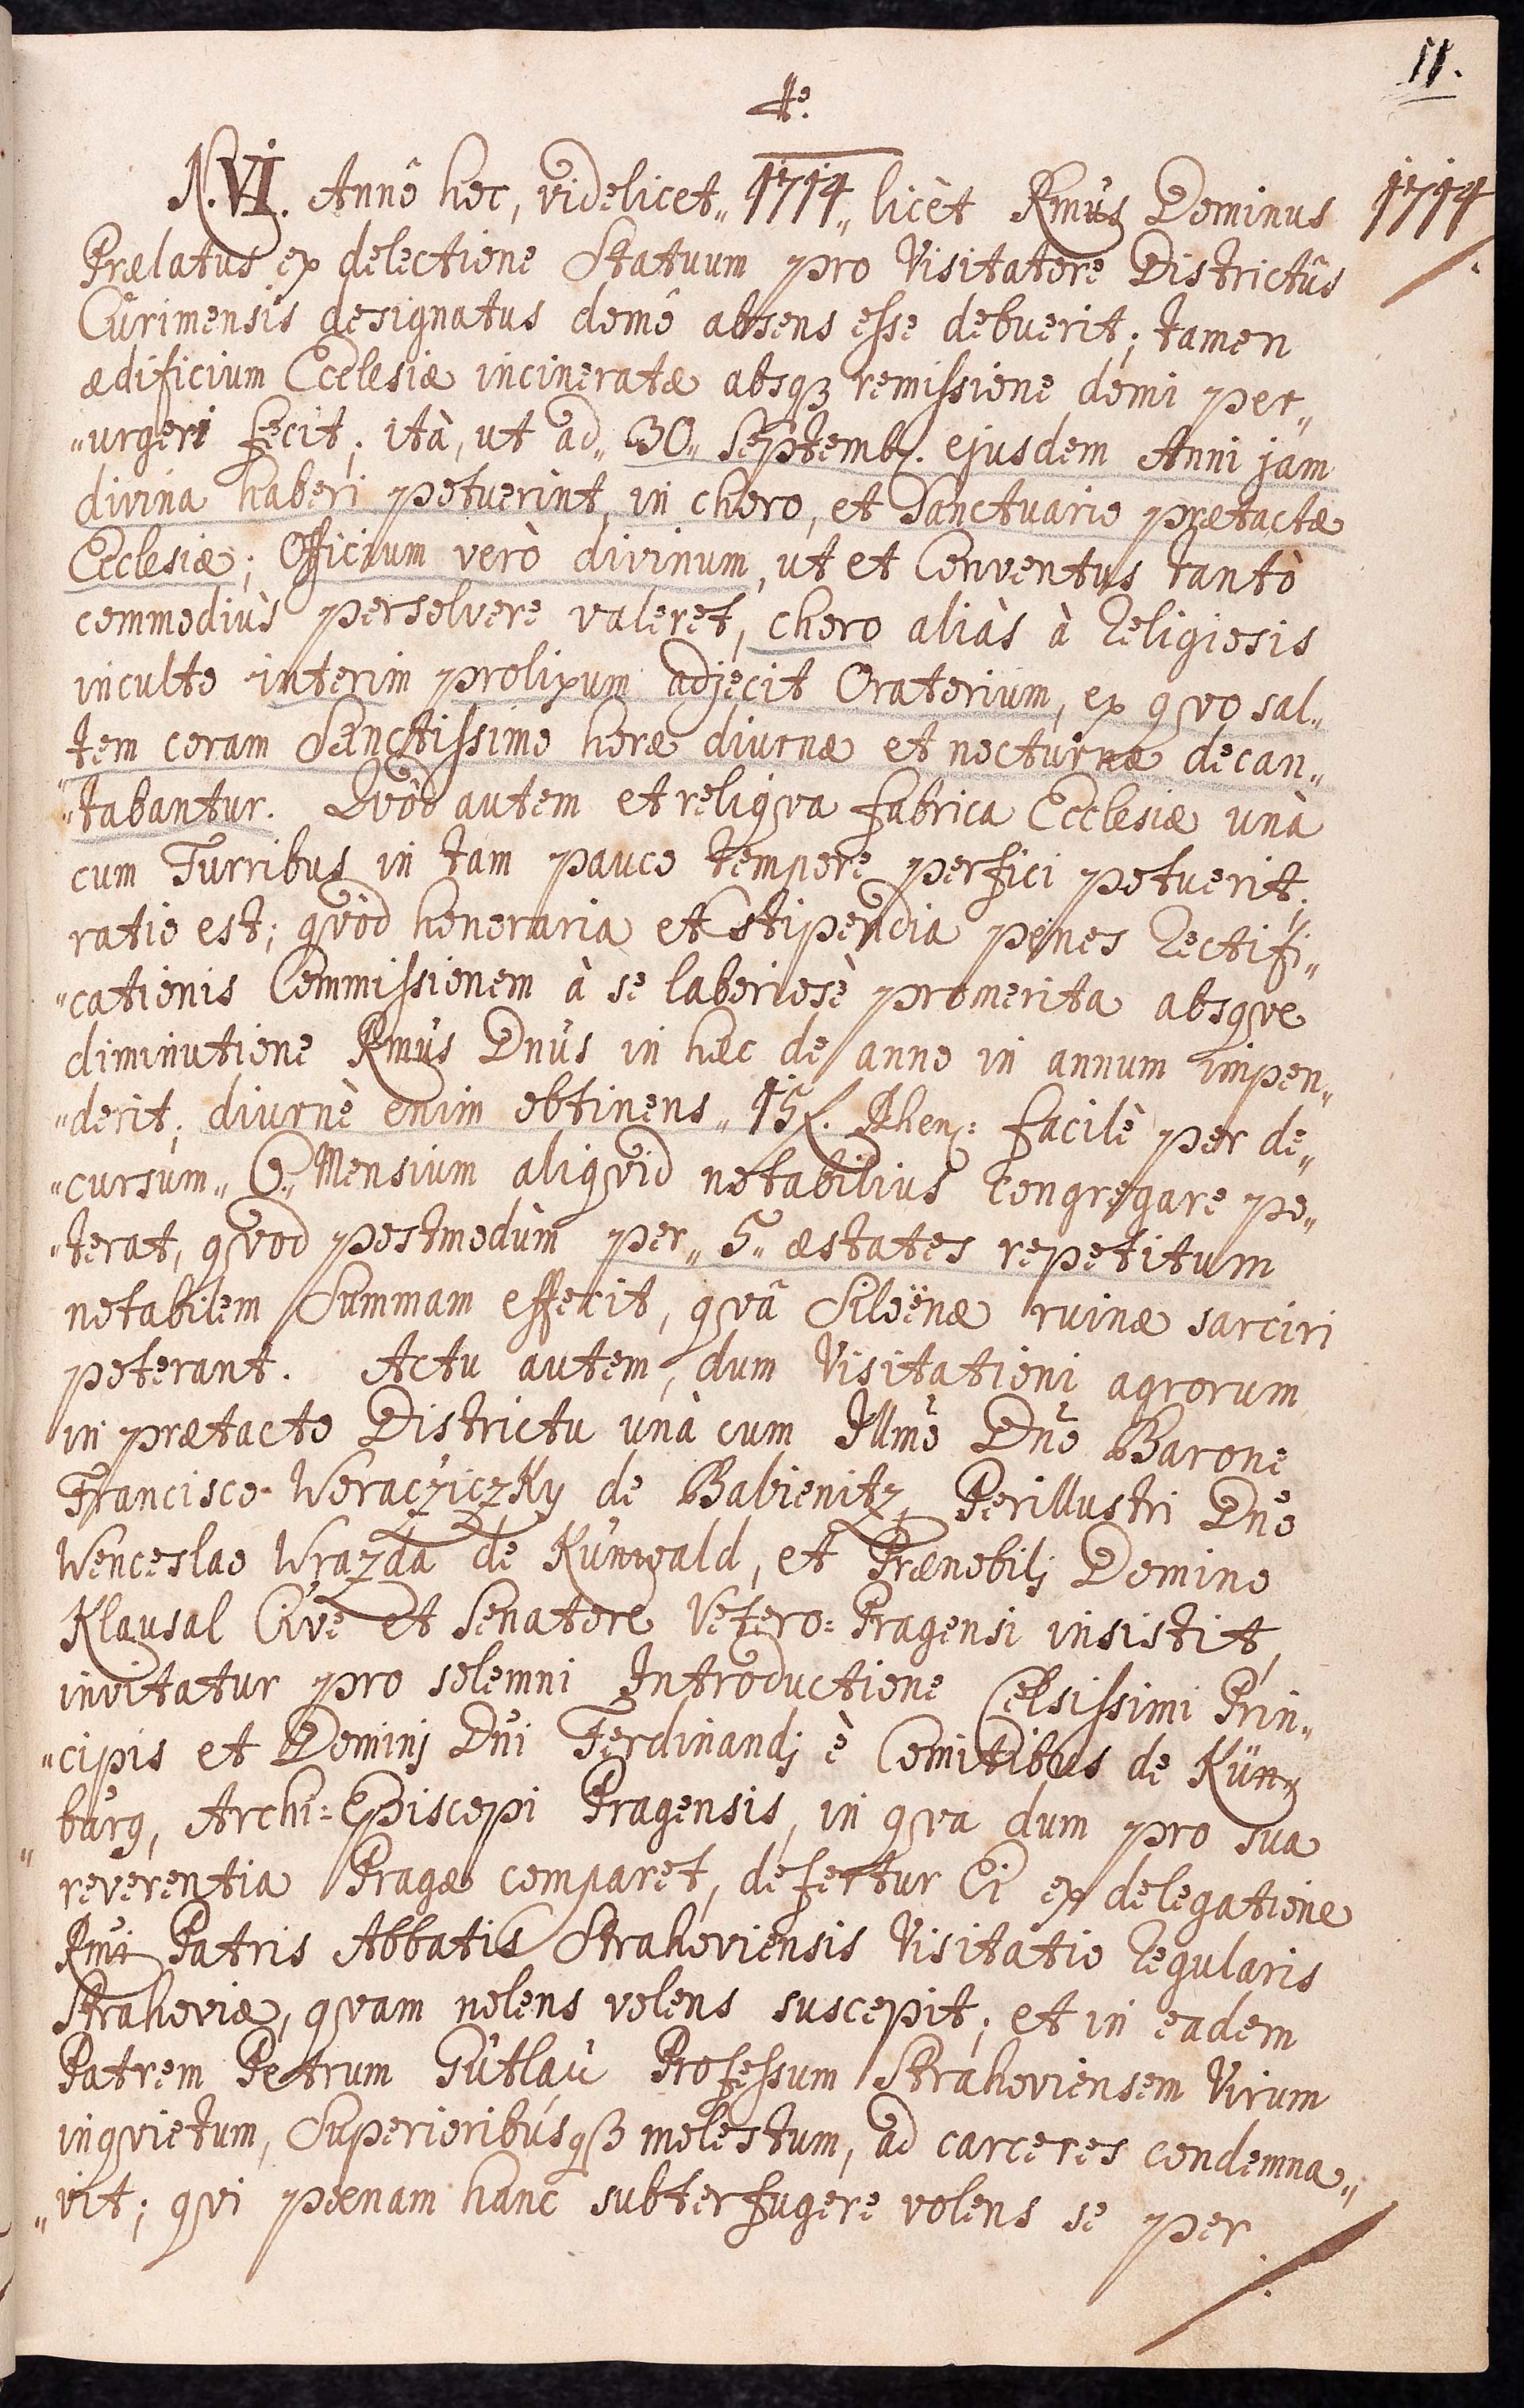 11.
4º.
N. VI. Annô hoc, videlicet „1714„ licèt Rmus Dominus
1714
Prælatus ex delectione Statuum pro Visitatore Districtûs
Curimensis designatus domô absens esse debuerit; tamen
ædificium Ecclesiæ incineratæ absq3 remissione domi per„
„urgeri fecit; ità, ut ad „30„ Septemb. ejusdem Anni jam
divina haberi potuerint, in choro, et Sanctuario prætactæ
Ecclesiæ; Officium verò divinum, ut et Conventus tantò
commodiùs persolvere valeret, choro aliàs à Religiosis
inculto interim prolixum adjecit Oratorium, ex qvo sal„
tem coram Sanctissimo horæ diurnæ et nocturnæ decan„
„tabantur. Qvòd autem et reliqva fabrica Ecclesiæ unà
cum Turribus in tam pauco tempore perfici potuerit;
ratio est; qvòd honoraria et stipendia penes Rectifi„
„cationis Commissionem à se laboriosè promerita absqve
diminutione Rmus Dnus in hæc de anno in annum impen„
„derit; diurnè enim obtinens „15f. Rhen: facilè per de„
„cursum „6„ Mensium aliqvid notabilius congregare po„
„terat, qvod postmodùm per „5„ æstates repetitum
notabilem Summam effecit, qvâ Siloënæ ruinæ sarciri
poterant. Actu autem, dum Visitationi agrorum
in prætacto Districtu unà cum Illmo Dno Barone
Francisco Woracziczky de Babienitz, Perillustri Dno
Wenceslao Wrazda de Kunwald, et Prænobilj Domino
Klausal Cive et Senatore Vetero=Pragensi insistit,
invitatur pro solemni Introductione Celsissimi Prin„
„cipis et Dominj Dni Ferdinandj è Comitibus de Kün„
„burg, Archi=Episcopi Pragensis, in qva dum pro sua
reverentia Pragæ comparet, defertur Ei ex delegatione
Rmi Patris Abbatis Strahoviensis Visitatio Regularis
Strahoviæ, qvam nolens volens suscepit; et in eadem
Patrem Petrum Gutlau Professum Strahoviensem Virum
inqvietum, Superioribúsq3 molestum, ad carceres condemna„
„vit; qvi pœnam hanc subterfugere volens se per